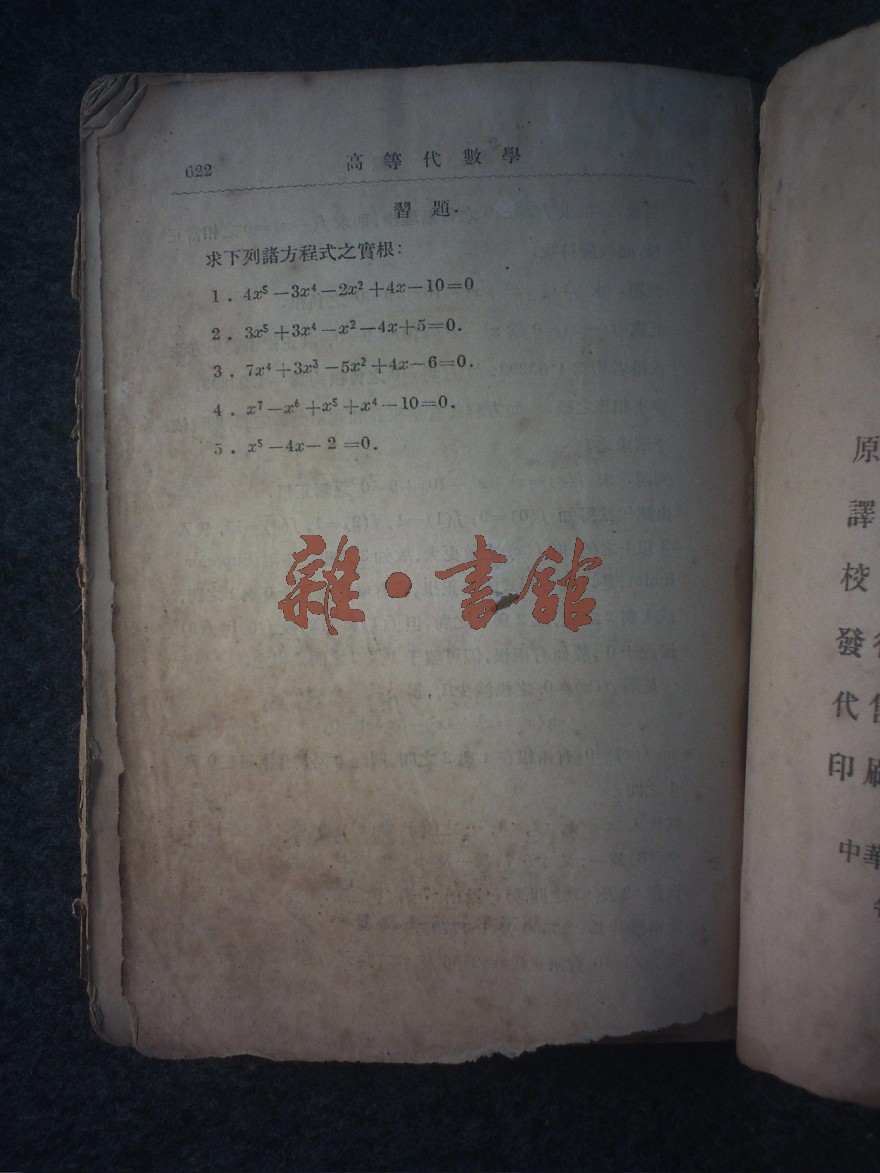 622
高等代數學
習題.
求下列諸方程式之實根:
1. 4x⁵－3x⁴－2x²＋4x－10＝0
2. 3x⁵＋3x⁴－x²－4x＋5＝0.
3. 7x⁴＋3x³－5x²＋4x－6＝0.
4. x⁷－x⁶＋x⁵＋x⁴－10＝0.
5. x⁵－4x－2＝0.
雜·書館
原
譯
校
發
代售
印刷
中華